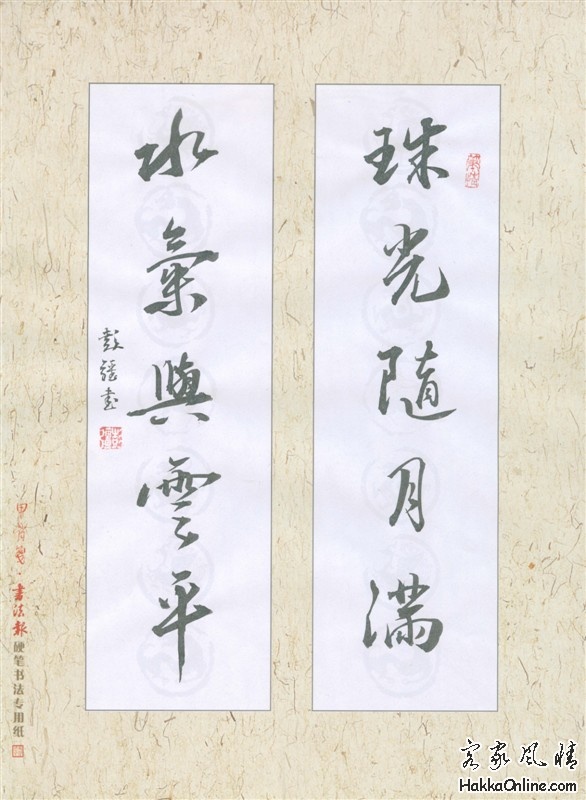 珠光随月满
水氣與雲平
彭疆书
書法報
硬笔书法专用纸
客家风情
HakkaOnline.com